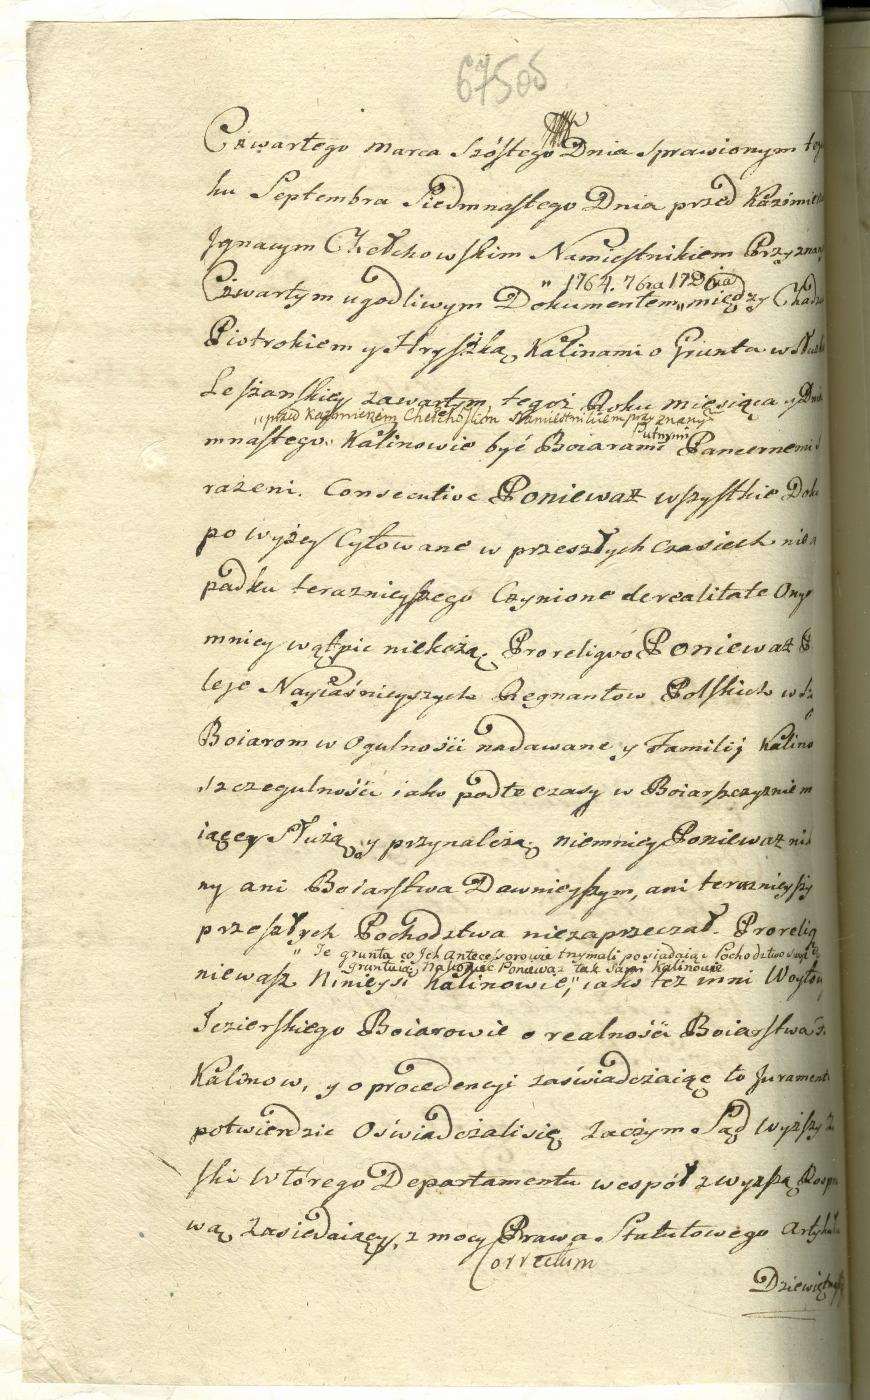 675 06
Czwartego Marca Szóstego Dnia sprawionym
ku Septembra Siedmnastego Dnia przed Kazimie
Jgnacym Chełchowskim Namiestnikiem Przyznan
" 1764. 7bra 17 Dnia
Czwartym ugodliwym Dokumentem „ między
Piotrokiem y Hryszką Kalinami o Grunta w
Leszanskiey zawartym, tegoż Roku miesiąca y Dnia
„ przed Kazimierzem Chełchowskim Namiestnikiem przyznany
Putnymi
mnastego. Kalinowie być Boiarami Pancernemi
rażeni. Consecutive Ponieważ wszystkie Dok
po wyżey Cytowane w przeszłych Czasiech nie
padku teraznieyszego Czynione de realitate Ony
mniey wątpic niekażą. Proreliqvo Ponieważ
leje Nayiaśnieyszych Regnantow Polskich w
Boiarom w Ogulności nadawane y Familij Kalino
szczegulności iako podte czasy w Boiarszczyznie m
iącey Służą y przynależą, niemniey Ponieważ
ny ani Boiarstwa Dawnieyszym, ani teraznieyszy
przeszłych Pochodztwa niezaprzeczał. Proreliq
" Te grunta co Jch Antecessorowie trzymali posiadaiąc Pochodztwo swe
gruntuią, Nakoniec Ponieważ tak sami Kalinowie
niewasz Ninieysi Kalinowie, " iako też inni Woyto
Jezierskiego Boiarowie o realności Boiarstwa
Kalinow, y o procedencyi zaświadczaiąc to Jurament
potwierdzic Oświadczali się. Zaczym Sąd Wyższy
ski Wtórego Departamentu wespół z wyższą Rospra
wą Zasiedaiący, z mocy Prawa Statutowego Artyku
Correctum
Dziewiętnas